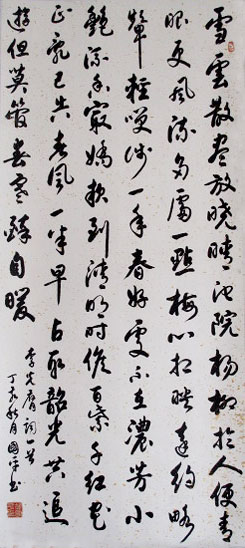 雪雲散盡放曉晴池院楊柳於人便青
眼更風流多處一點梅心相映遠約略
顰輕咲淺一年春好處不在濃芳小
艷疏香最嬌軟到清明時候百紫千紅花
正亂已失春風一半早占取韶光共追
遊但莫管春寒醉自暖
李元膺詞一首
丁亥秋月國平書